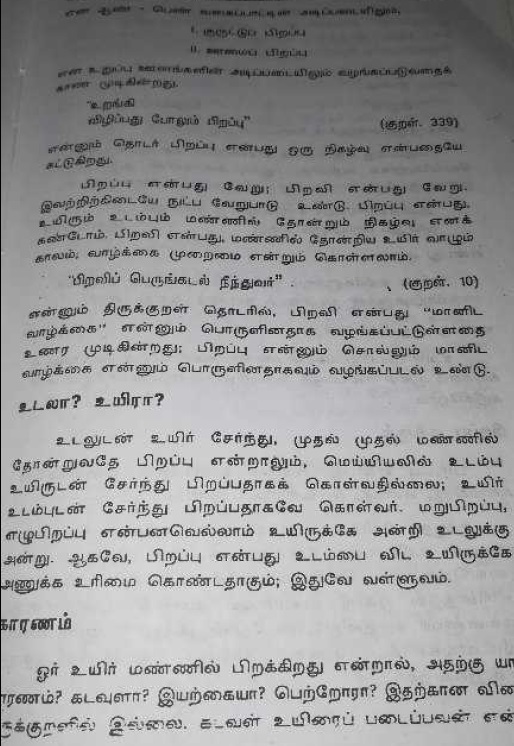 என ஆண் - பெண் வகைப்பாட்டின் அடிப்படையிலும்,
I. குருட்டுப் பிறப்பு
II. ஊமைப் பிறப்பு
என உறுப்பு ஊனங்களின் அடிப்படையிலும் வழங்கப்படுவதைக்
காண முடிகின்றது.
"உறங்கி
விழிப்பது போலும் பிறப்பு" (குறள். 339)
என்னும் தொடர் பிறப்பு என்பது ஒரு நிகழ்வு என்பதையே
சுட்டுகிறது.
பிறப்பு என்பது வேறு; பிறவி என்பது வேறு.
இவற்றிற்கிடையே நுட்ப வேறுபாடு உண்டு. பிறப்பு என்பது,
உயிரும் உடம்பும் மண்ணில் தோன்றும் நிகழ்வு எனக்
கண்டோம். பிறவி என்பது, மண்ணில் தோன்றிய உயிர் வாழும்
காலம்; வாழ்க்கை முறைமை என்றும் கொள்ளலாம்.
"பிறவிப் பெருங்கடல் நீந்துவர்" . (குறள். 10)
என்னும் திருக்குறள் தொடரில், பிறவி என்பது "மானிட
வாழ்க்கை" என்னும் பொருளினதாக வழங்கப்பட்டுள்ளதை
உணர முடிகின்றது; பிறப்பு என்னும் சொல்லும் மானிட
வாழ்க்கை என்னும் பொருளினதாகவும் வழங்கப்படல் உண்டு.
உடலா? உயிரா?
உடலுடன் உயிர் சேர்ந்து, முதல் முதல் மண்ணில்
தோன்றுவதே பிறப்பு என்றாலும், மெய்யியலில் உடம்பு
உயிருடன் சேர்ந்து பிறப்பதாகக் கொள்வதில்லை; உயிர்
உடம்புடன் சேர்ந்து பிறப்பதாகவே கொள்வர். மறுபிறப்பு,
எழுபிறப்பு என்பனவெல்லாம் உயிருக்கே அன்றி உடலுக்கு
அன்று. ஆகவே, பிறப்பு என்பது உடம்பை விட உயிருக்கே
அணுக்க உரிமை கொண்டதாகும்; இதுவே வள்ளுவம்.
காரணம்
ஓர் உயிர் மண்ணில் பிறக்கிறது என்றால், அதற்கு யா
ாரணம்? கடவுளா? இயற்கையா? பெற்றோரா? இதற்கான வின
ருக்குறளில் இல்லை. கடவள் உயிரைப் படைப்பவன் என்